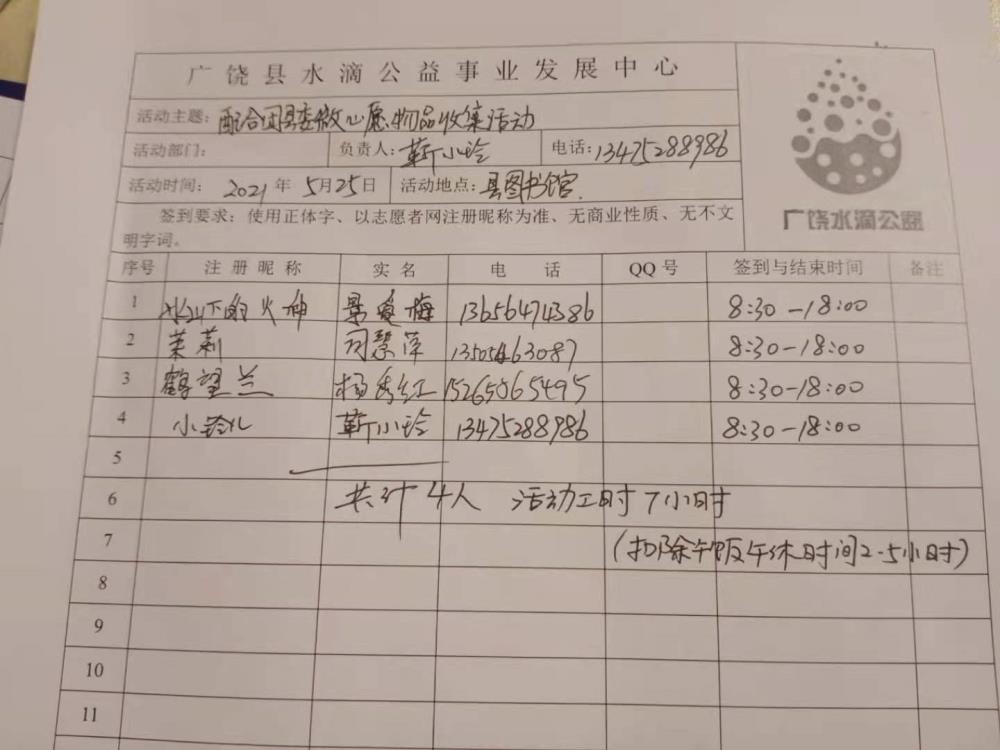 广饶县水滴公益事业发展中心
活动主题：配合团县委微心愿物品收集活动
活动部门： 负责人：靳小玲 电话：13475288986
活动时间： 2021年 5月25日 活动地点：县图书馆.
签到要求：使用正体字、以志愿者网注册昵称为准、无商业性质、无不文
明字词。
广饶水滴公益
序号 注册昵称 实名 电 话 QQ号 签到与结束时间 备注
1 冰山下的火种 景爱梅 13656474386 8:30-18:00
2 茉莉 司慧萍 13505463087 8:30-18:00
3 鹤望兰 杨秀红 15265065495 8:30-18:00
4 小铃儿 靳小玲 13475288986 8:30-18:00
5
6 共计4人 活动工时7小时
7 (扣除午饭午休时间2.5小时)
8
9
10
11